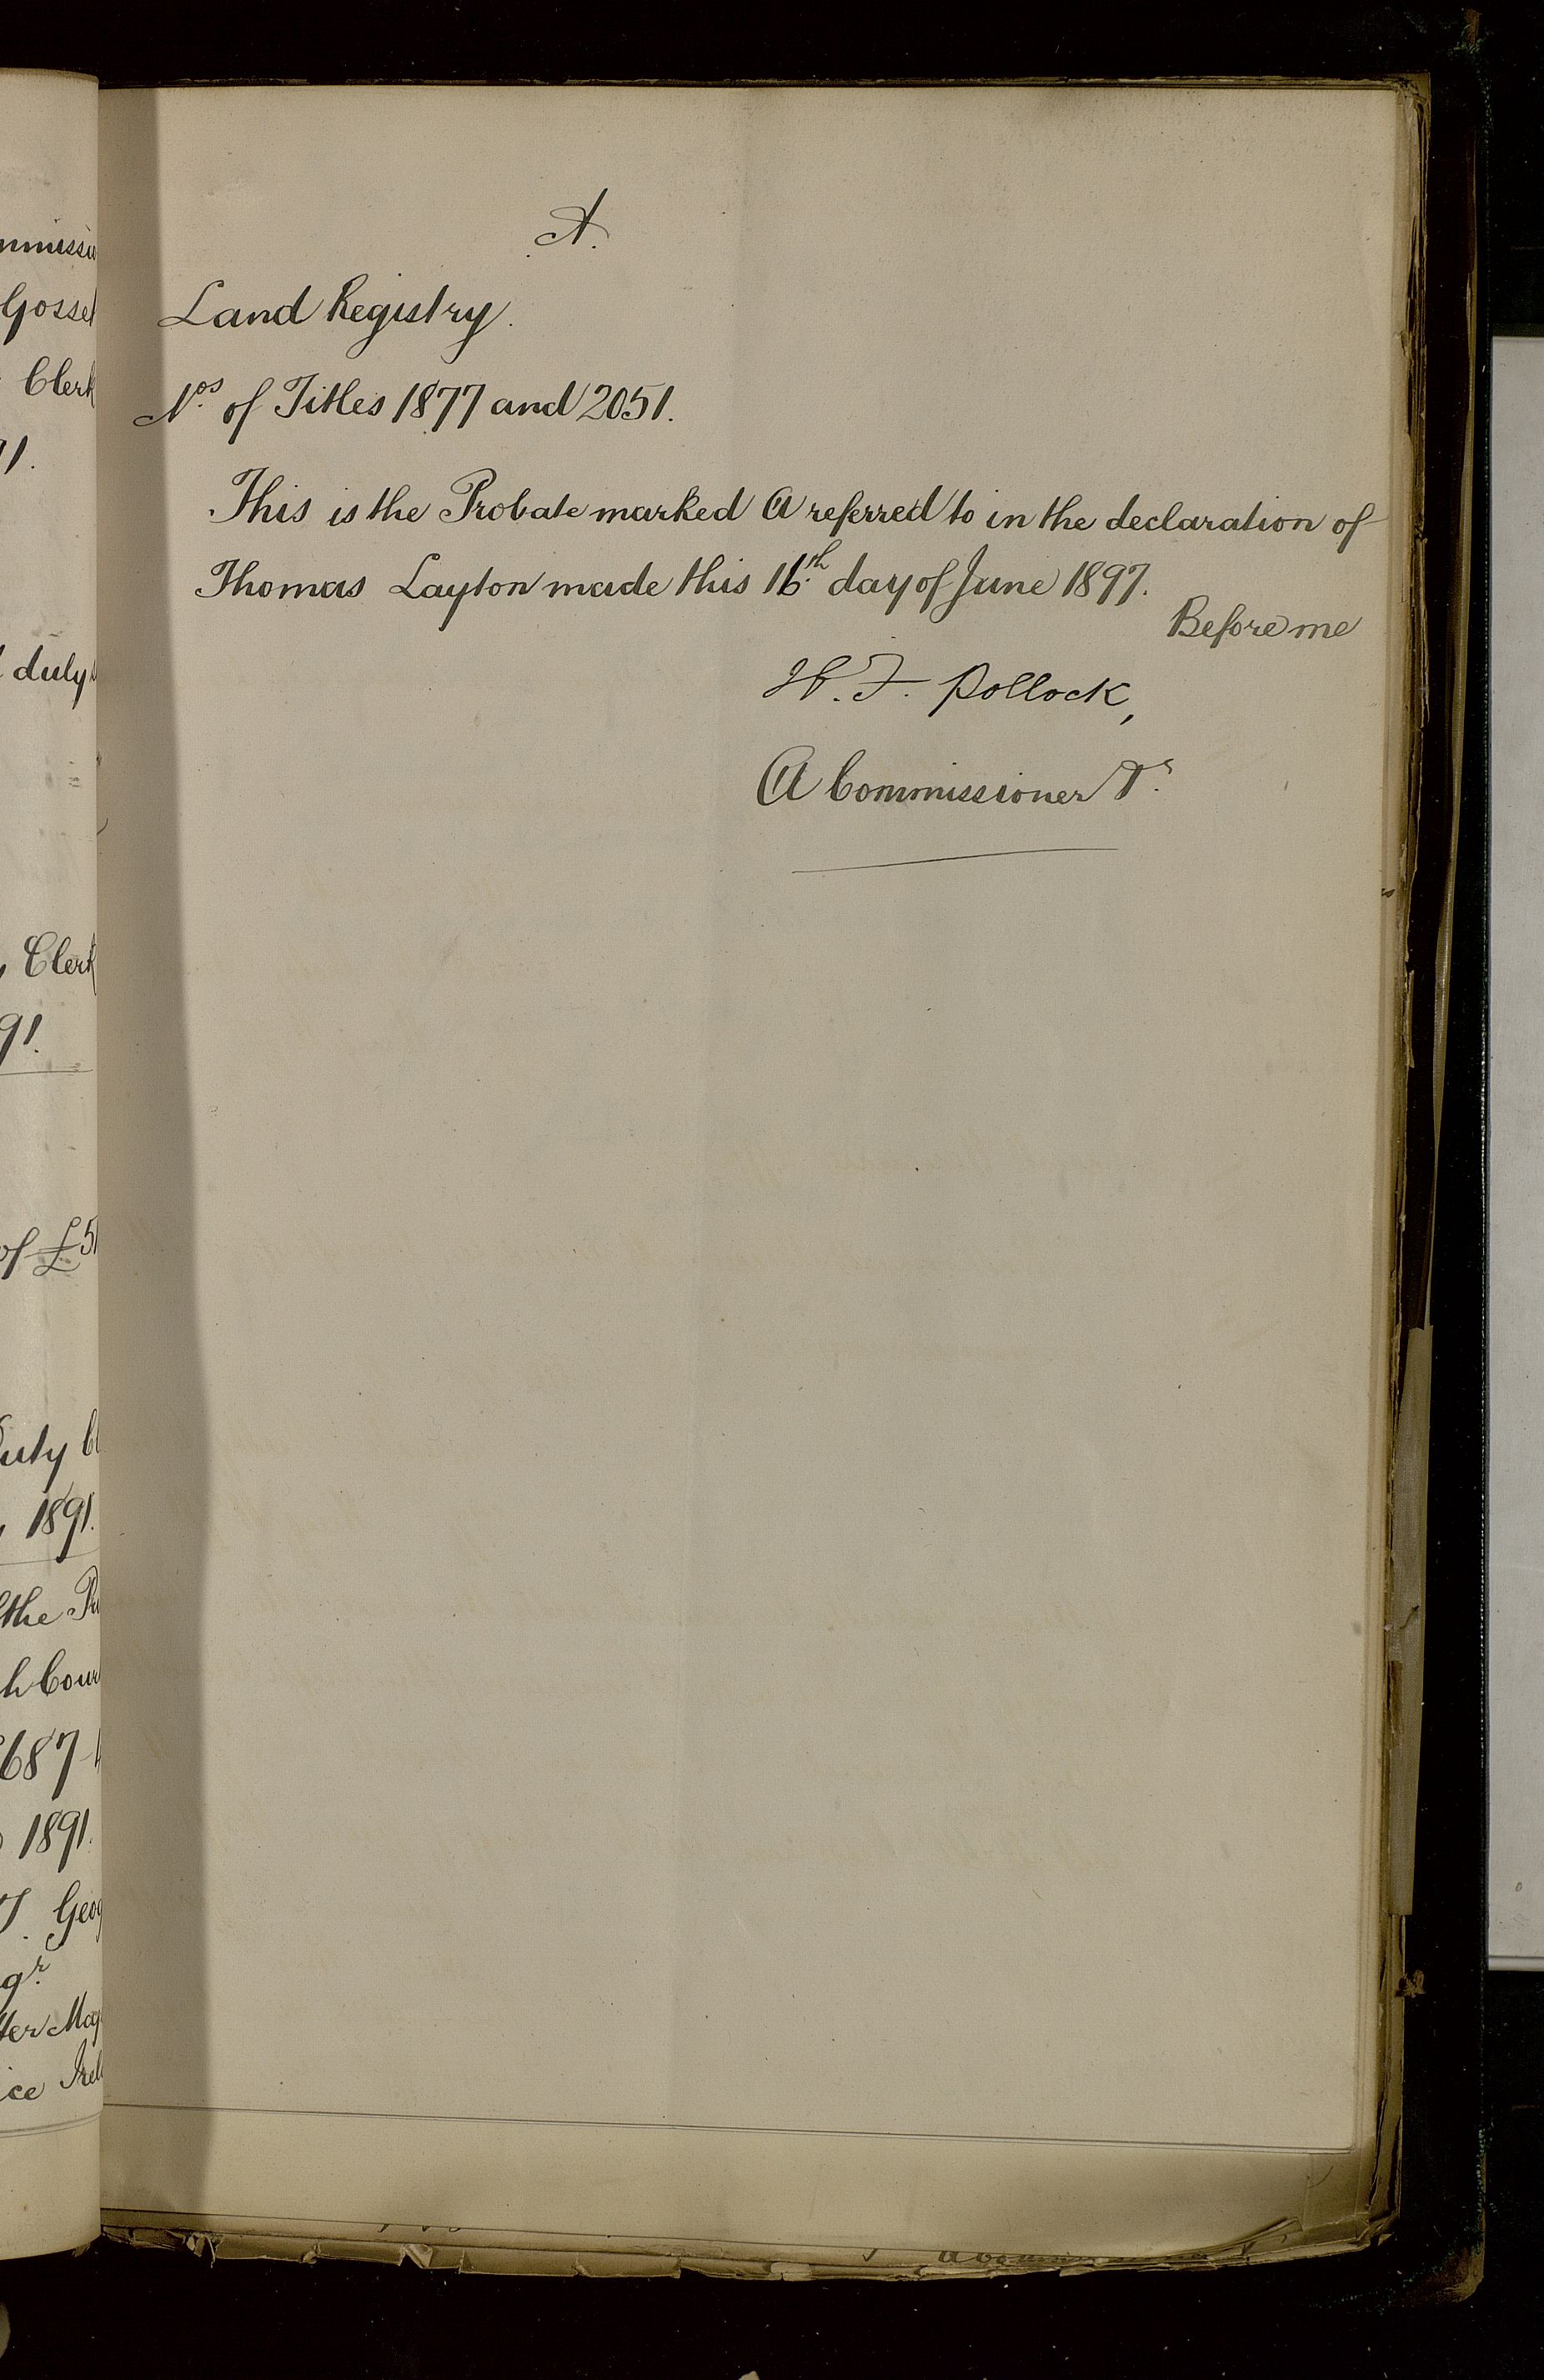 A.
Land Registry.
Nos. of Titles 1877 and 2051.
This is the Probate marked A referred to in the declaration of
Thomas Layton made this 16th. day of June 1897.
Before me
W. F. Pollock,
A Commissioner &c.
Gossel
Clerk
91.
duly
Clerk
91.
of £51
uty Cl
1891.
the Pr
h Cour
687
1891.
Geog
gr.
ter Mag
ice Irel